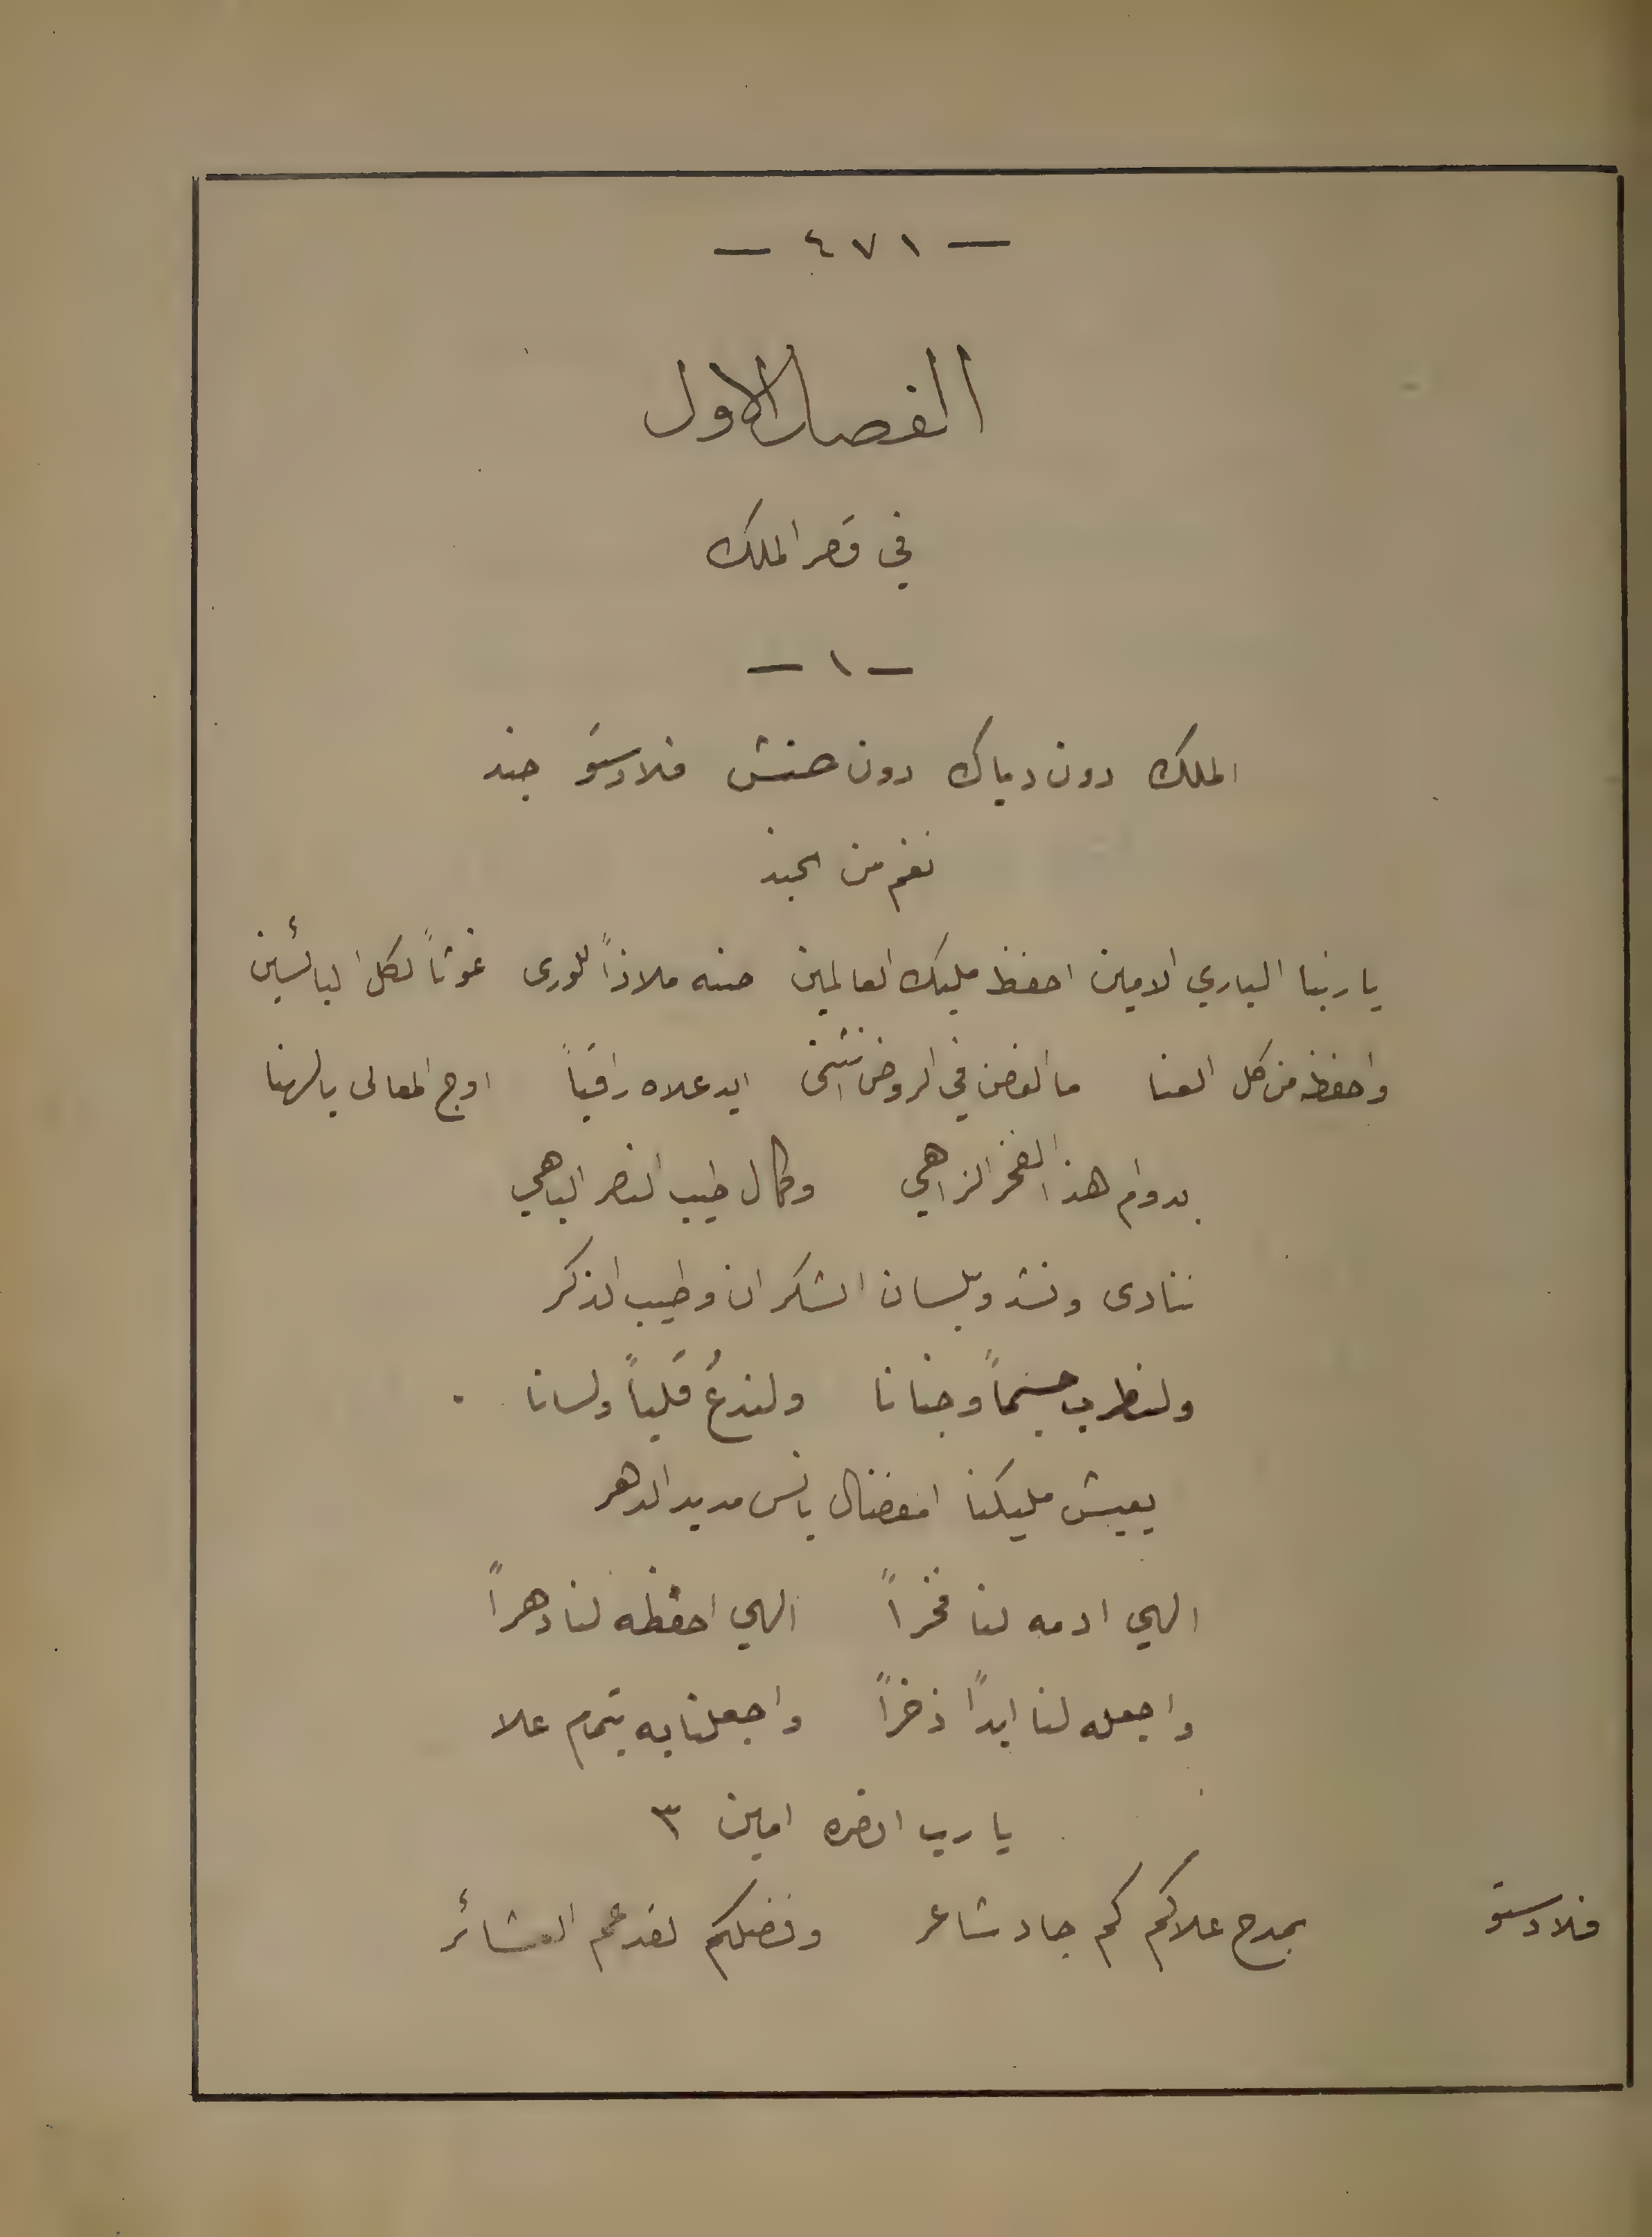 — ٤٧١ —
الفصل الاول
في قصر الملك
— ١ —
الملك دون دياك دون صنش فلادستو جند
نغم من الجند
يا ربنا الباري الامين احفظ مليك العالمين صنه ملاذاً للورى غوثاً لكل البائسين
واحفظه من كل العنا ما الغصن في الروض انثنى ايد علاه راقياً اوج المعالى بالهنا
بدوام هذا الفخر الزاهي وكمال طيب النصر الباهي
ننادى ونشدو بلسان الشكران وطيب الذكر
ولنطرب جسماً وجنانا ولندعُ قلباً ولسانا
يعيش مليكنا المفضال بانس مديد الدهر
الهي ادمه لنا فخراً الهي احفظه لنا دهراً
واجعله لنا ابداً ذخراً واجعلنا به بتمام علا
يا رب انصره امين ٣
فلادستو بمدح علاكم كم جاد شاعر وفضلكم لقد عم العشائر